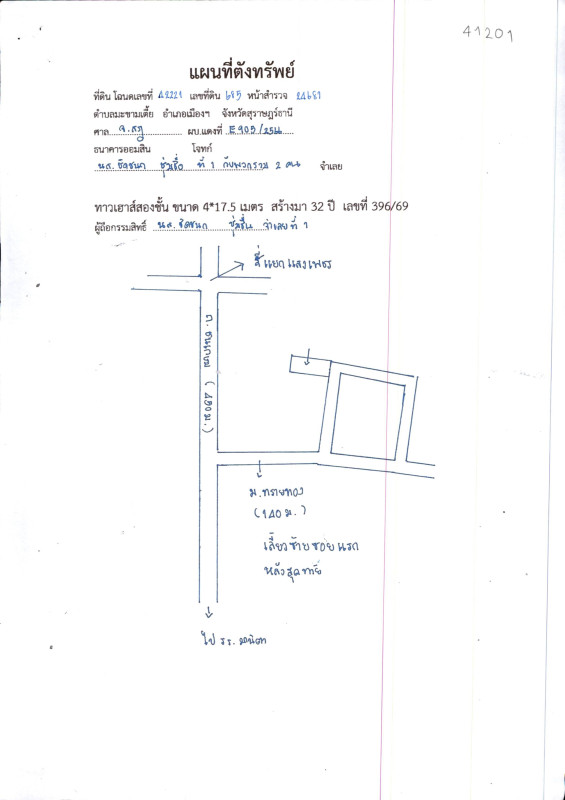 41201
แผนที่ตั้งทรัพย์
ที่ดิน โฉนดเลขที่ 42221 เลขที่ดิน 685 หน้าสำรวจ 24681
ตำบลมะขามเตี้ย อำเภอเมืองฯ จังหวัดสุราษฎร์ธานี
ศาล จ.สฎ ผบ.แดงที่ E903/25
ธนาคารออมสิน โจทก์
นส. ชุ่มชื่น ที่ 1 กับพวกรวม 2 คน จำเลย
ทาวเฮาส์สองชั้น ขนาด 4*17.5 เมตร สร้างมา 32 ปี เลขที่ 396/69
ผู้ถือกรรมสิทธิ์ นส. ชิดชนก ชุ่มชื่น จำเลยที่ 1
สี่แยกแสงเพชร
ถ. ชนเกษม (450 ม.)
ม.ทรายทอง
(140 ม.)
เลี้ยวซ้ายซอยแรก
หลังสุดท้าย
ไป รร. มานิตา